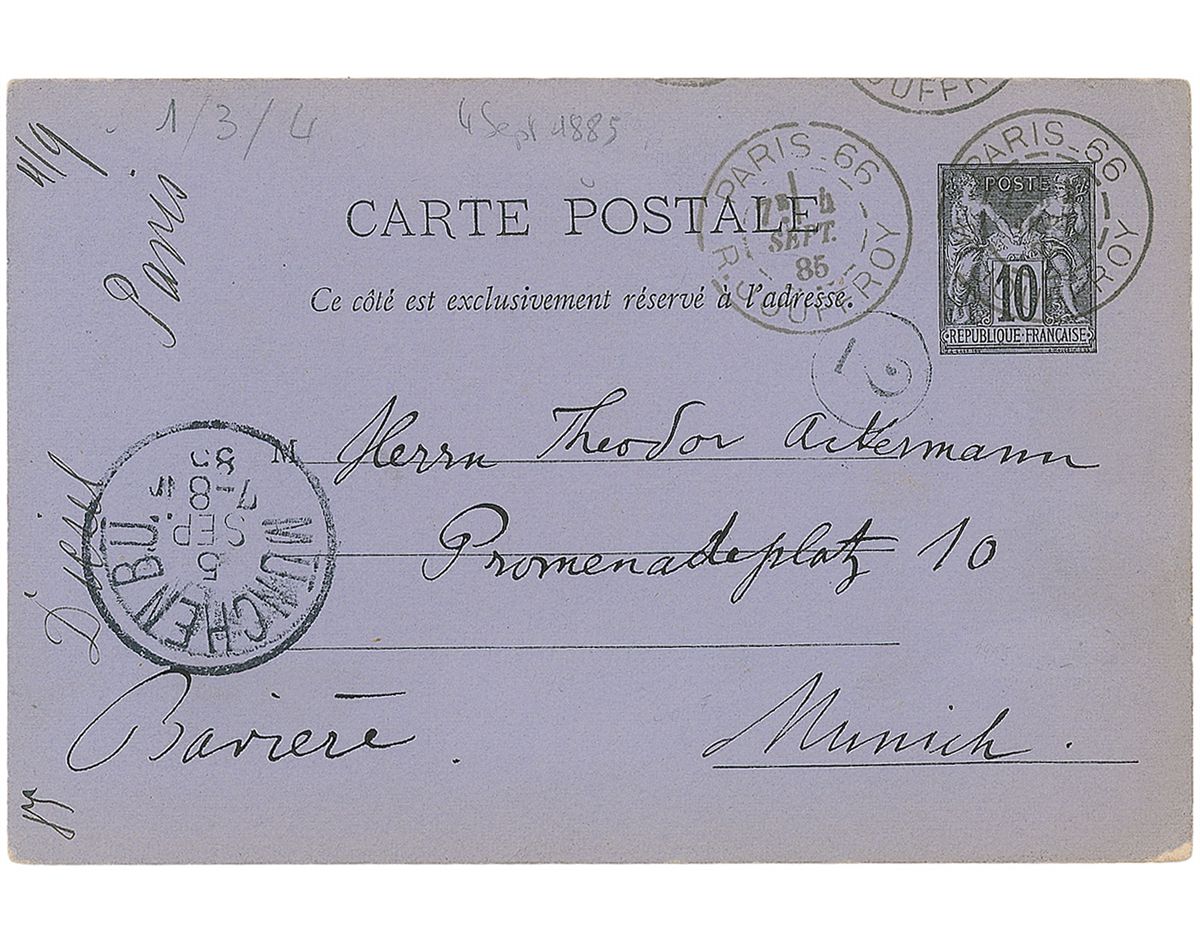 1/3/4
4 Sept 1885
4/9
Paris
Diesel
85
CARTE POSTALE
Ce côté est exclusivement réservé à l'adresse.
PARIS_66
4
SEPT.
85
R. JOUFFROY
PARIS_66
POSTE
10
RÉPUBLIQUE·FRANÇAISE
M
Herrn Theodor Ackermann
Promenadeplatz 10
Munich.
Bavière.
MÜNCHEN BÜ.
5
SEP.
7-8
85